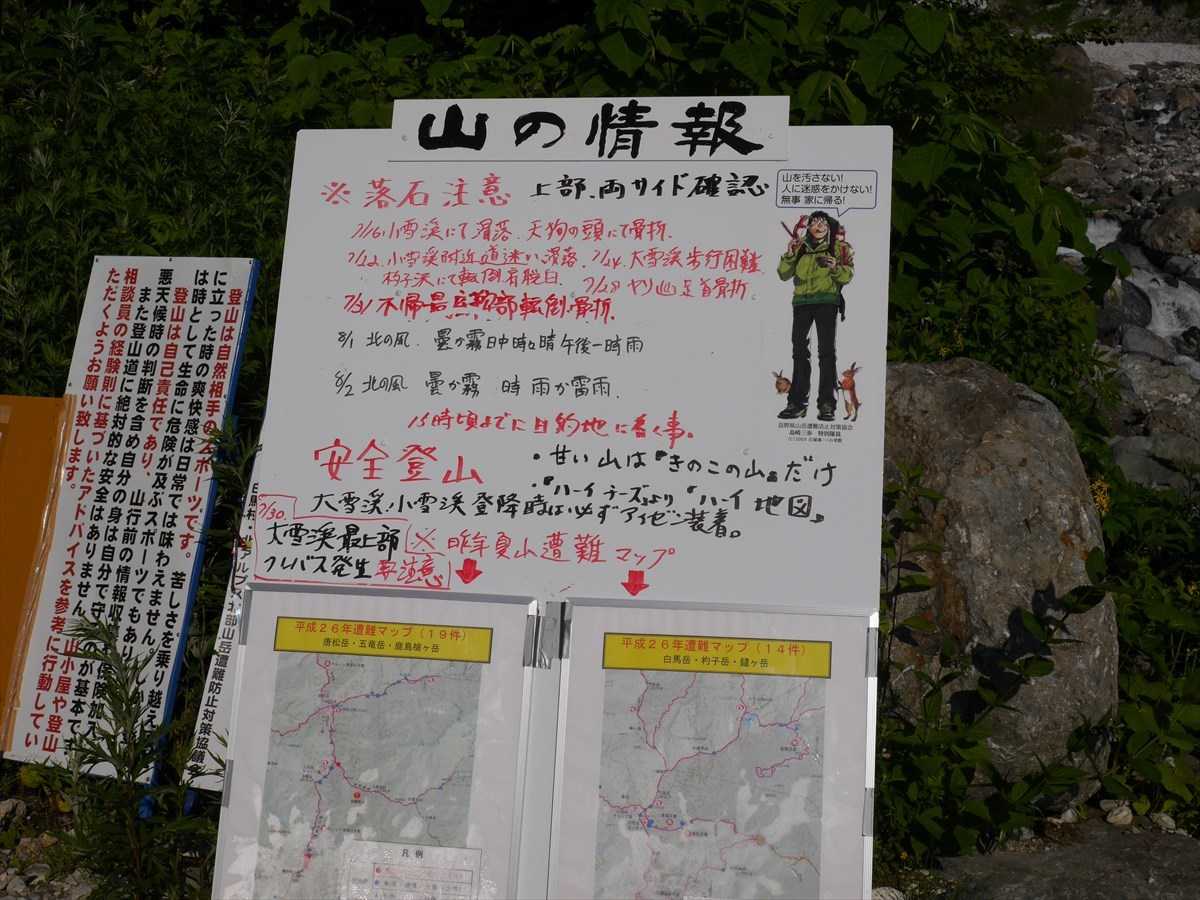 山の情報
※落石注意 上部、両サイド確認
山を汚さない!
人に迷惑をかけない!
無事 家に帰る!
7/16小雪渓にて滑落、天狗の頭にて骨折、
7/22、小雪渓附近道迷い滑落、7/24、大雪渓歩行困難
杓子沢にて転倒肩脱臼、7/28ヤリ山足首骨折
7/31不帰最 部転倒骨折、
8/1 北の風、曇か霧日中時々晴午後一時雨
8/2 北の風 曇か霧 時 雨か雷雨、
15時頃までに目的地に着く事。
長野県山岳遭難防止対策協会
島崎三歩 特別隊員
安全登山
・甘い山は『きのこの山』だけ
・『ハーイチーズ』より『ハーイ地図』
大雪渓、小雪渓登降時は必ずアイゼン装着。
7/30、
大雪渓最上部
クレバス発生 要注意
※昨年夏山遭難マップ
平成26年遭難マップ(19件)
唐松岳・五竜岳・鹿島槍ヶ岳
凡例
平成26年遭難マップ(14件)
白馬岳・杓子岳・鑓ヶ岳
登山は自然相手のスポーツです。苦しさを乗り越え
に立った時の爽快感は日常では味わえません。しか
は時として生命に危険が及ぶスポーツでもあり
登山は自己責任であり、山行前の情報収 保険加入
悪天候時の判断を含め自分の身は自分で守 のが基本で
また登山道に絶対的な安全はありません。 山小屋や登山
相談員の経験則に基づいたアドバイスを参考に行動してい
ただくようお願い致します。
部山岳遭難防止対策協議